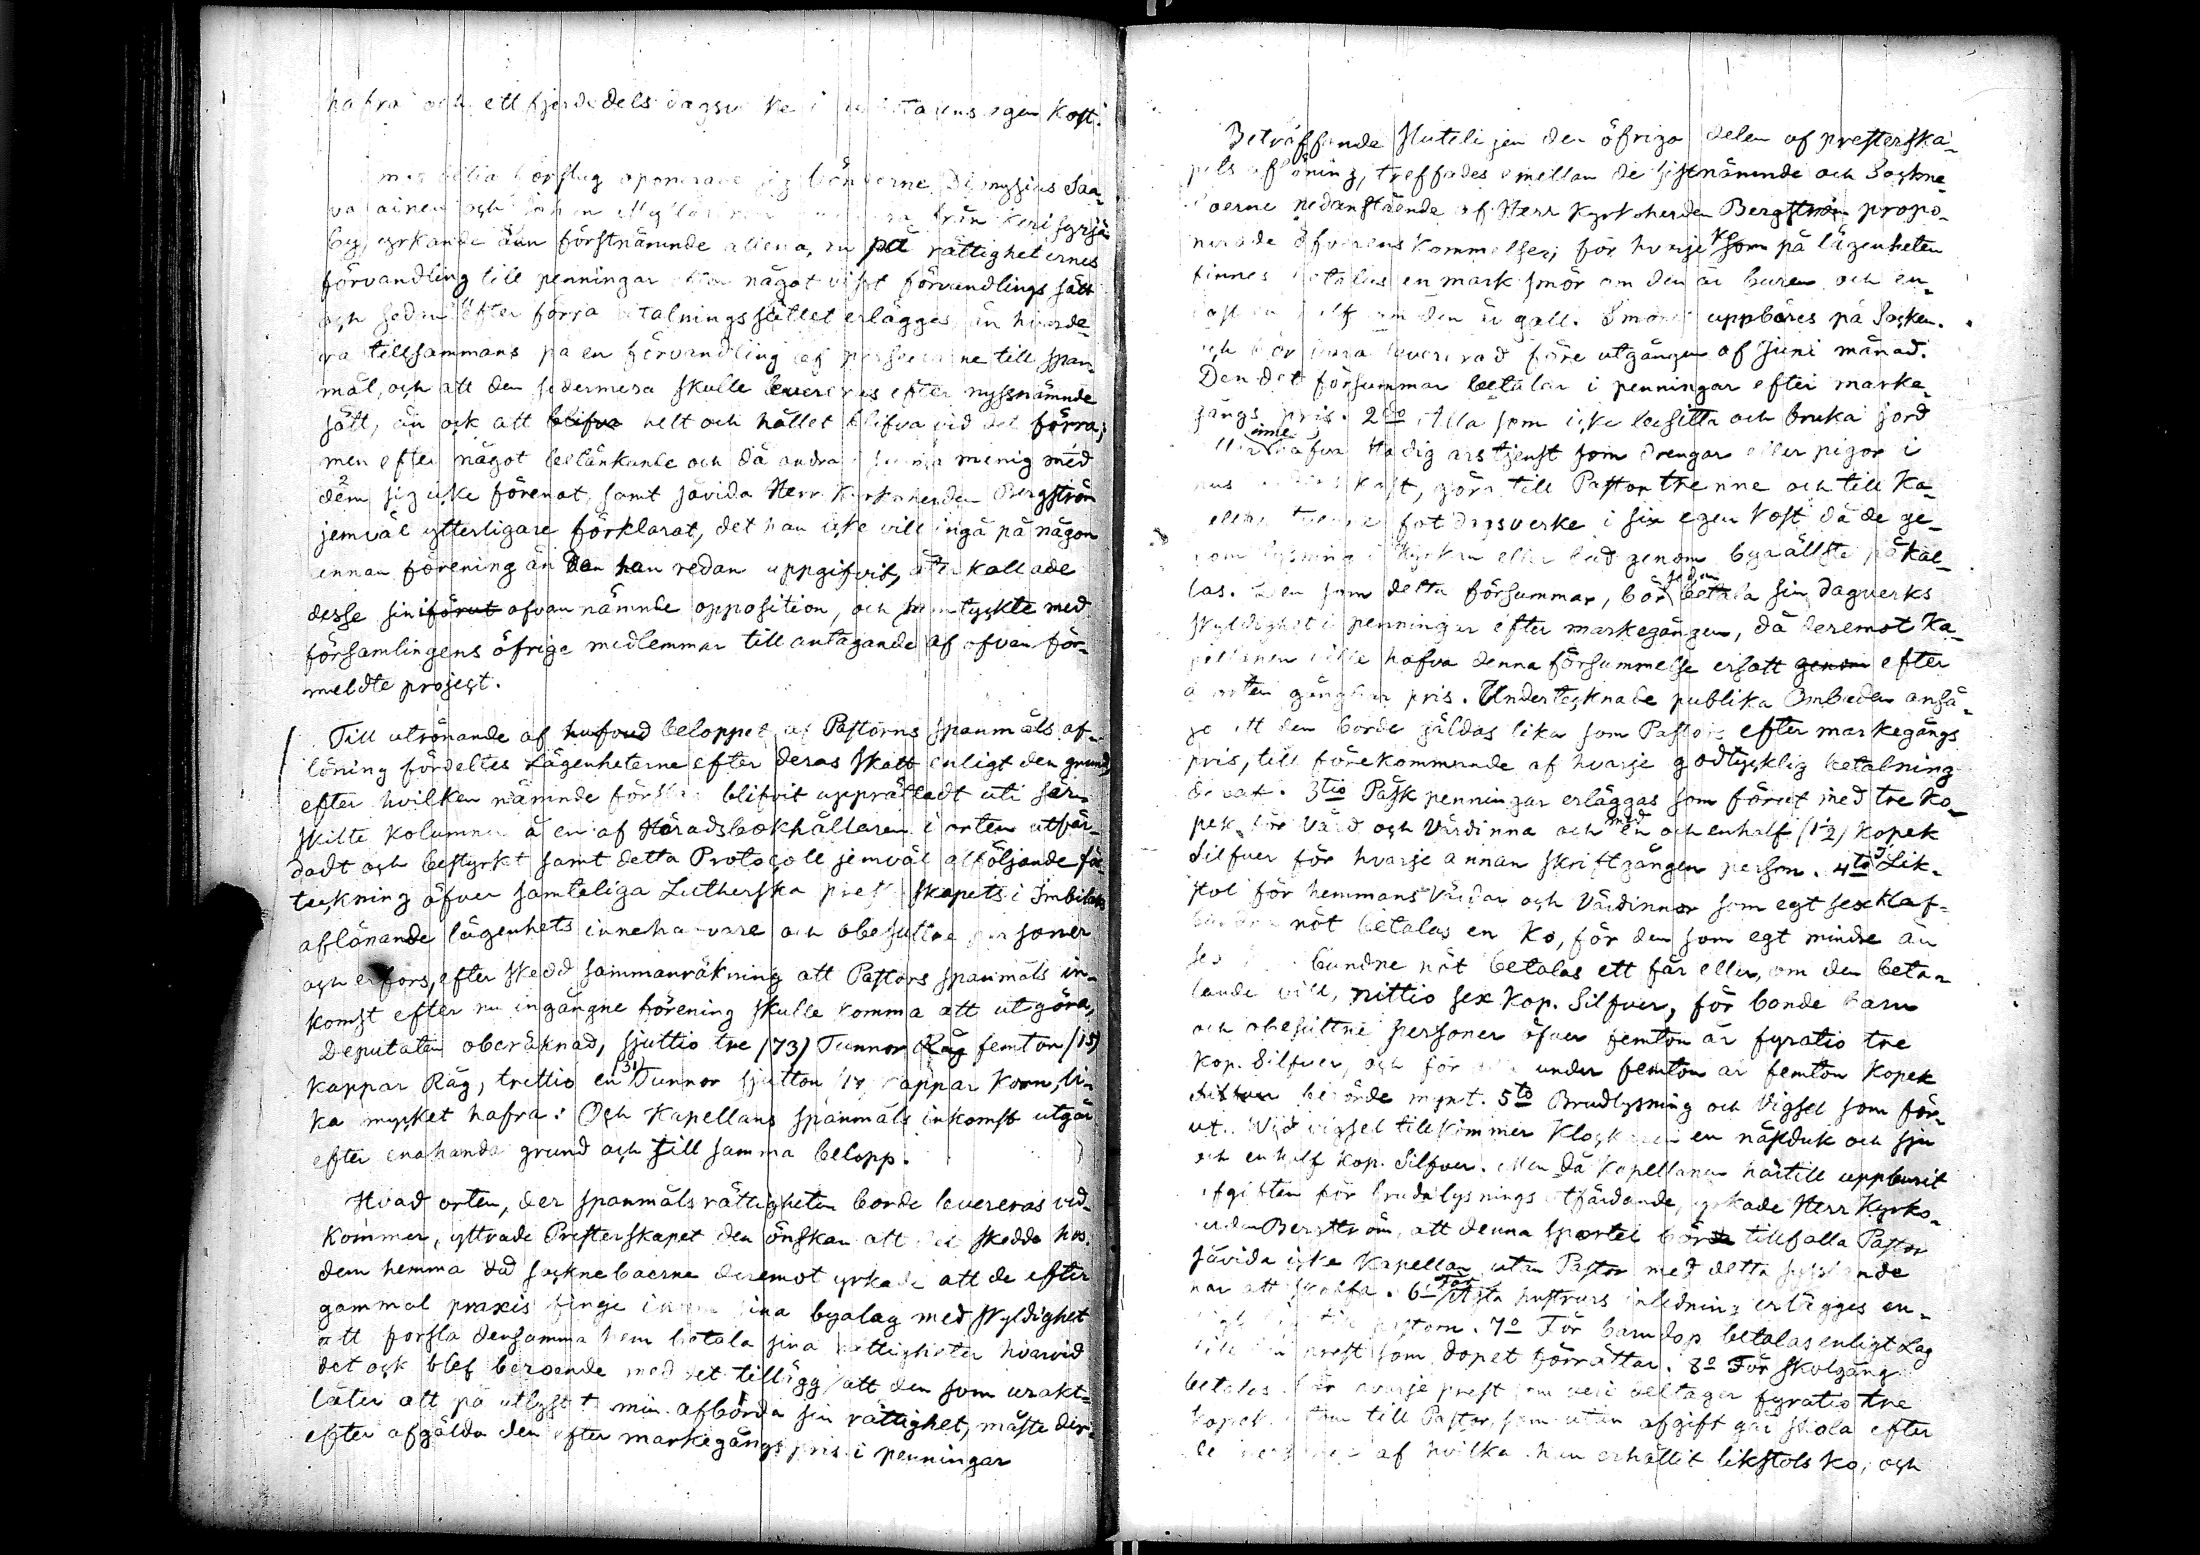 hafra och ett fjerdedels dagsverke i egen kost.
förslag oponerade sig bönderne Dionysius Saa-
vaainen och Johan från Kerisyrjä
by, yrkande än förstnämnde allena, en på rättigheternes
förvandling till penningar efter något visst förvandlings sätt
och sedan efter förra betalningssättet erlägges, än hvarde-
ra tillsammans på en förvandling af till span-
mål, och att den sedermera skulle levereras efter nyssnämnde
sätt, än ock att blifva helt och hållet blifva vid det förra;
men efter något betänkande och då andra menig med
dem sig icke förenat, samt såvida Herr Kyrkoherden Bergström
jemväl ytterligare förklarat, det han icke vill ingå på någon
annan förening än den han redan uppgifvit, återkallade
desse sin förut ofvannämnde opposition, och samtyckte med
församlingens öfrige medlemmar till antagande af ofvan för-
meldte project.
Till utrönande af hufvud beloppet af Pastorns spanmåls af-
löning fördeltes Lägenheterne efter deras skatt enligt den grund,
efter hvilken nämnde förslag blifvit upprättadt uti sär-
skilte kolumner å en af Häradsbokhållaren i orten utfär-
dadt och bestyrkt samt detta Protocoll jemväl åtföljande för-
teckning öfver samteliga Lutherska presterskapets i Imbilaks
aflönande lägenhets innehafvare och obesuttne personer
och erfors, efter skedd sammanräkning att Pastors spanmåls in-
komst efter nu ingångne förening skulle komma att utgöra,
Deputaten oberäknad, sjuttio tre (73) Tunnor Råg femton (15)
kappar Råg, trettio en (31) Tunnor sjutton 17 kappar Korn, li-
ka mycket hafra: Och Kapellans spanmåls inkomst utgår
efter enahanda grund och till samma belopp.
Hvad orten, der spanmåls rättigheten borde levereras vid-
kommer, yttrade Presterskapet den önskan att det skedde hos
dem hemma då socknebоerne deremot yrkade att de efter
gammal praxis finge inom sina byalag med skyldighet
att forsla densamma hem betala sina rättigheter hvarvid
det ock blef beroende med det tillägg att den som urakt-
låter att på utlyst termin afbörda sin rättighet, måste der-
efter afgälda den efter markegångspris i penningar
Beträffande sluteligen den öfriga delen af presterska-
pets aflöning, träffades emellan de sistnämnde och Sockne-
boerne nedanstående af Herr Kyrkoherden Bergström propo-
nerade öfverenskommelser; för hvarje ko som på lägenheten
finnes betalas en mark smör om den är buren och en-
dast en half om den är gall. Smöret uppbäres på Socken.
och bör vara levererad före utgången af Juni månad.
Den det försummar betalar i penningar efter marke-
gångs pris. 2do Alla som icke besitta och bruka jord
eller innehafva stadig årstjenst som drengar eller pigor i
kost, göra till Pastor trenne och till Ka-
pellan tvenne fot dagsverke i sin egen kost då de ge-
nom lysning i Kyrkan eller bud genom byaälste påkal-
las. Den som detta försummar, bör sedan betala sin dagverks
skyldighet i penningar efter markegången, då deremot Ka-
pellanen ville hafva denna försummelse ersatt genom efter
å orten gångbar pris. Undertecknade publika Ombuden anså-
go att den borde gäldas lika som Pastors efter markegångs
pris, till förekommande af hvarje godtycklig betalning
deraf. 3tio Påsk penningar erläggas som förut med tre ko-
pek för Värd och Värdinna och med en och enhalf (1½) kopek
Silfver för hvarje annan skriftgången person. 4to Lik-
stol för hemmans Värdar och Värdinnor som egt sex klaf-
bundne nöt betalas en Ko, för den som egt mindre än
sex bundne nöt betalas ett får eller, om den beta-
lande vill, nittio sex kop. Silfver, för bonde barn
och obesuttne personer öfver femton år fyratio tre
kop. Silfver, och för under femton år femton kopek
Silfver berörde mynt. 5to Brudlysning och Vigsel som för-
ut. Vid vigsel tillkommer Klockaren en näsduk och sju
och enhalf kop. Silfver. Men då Kapellanen härtill uppburit
afgiften för brudalysnings utfärdande, yrkade Herr Kyrko-
herden Bergström, att denna sportel borde tillfalla Pastor
såvida icke Kapellan utan Pastor med detta
har att skaffa. 6to För hustrurs inledning erlägges en-
pastorn. 7o För barndop betalas enligt Lag
till den prest som dopet förrättar. 8o För skolgång
betalas för hvarje prest som deri deltager fyratio tre
kopek utom till Pastor, som utan afgift går skola efter
de af hvilka han erhållit likstols ko, och